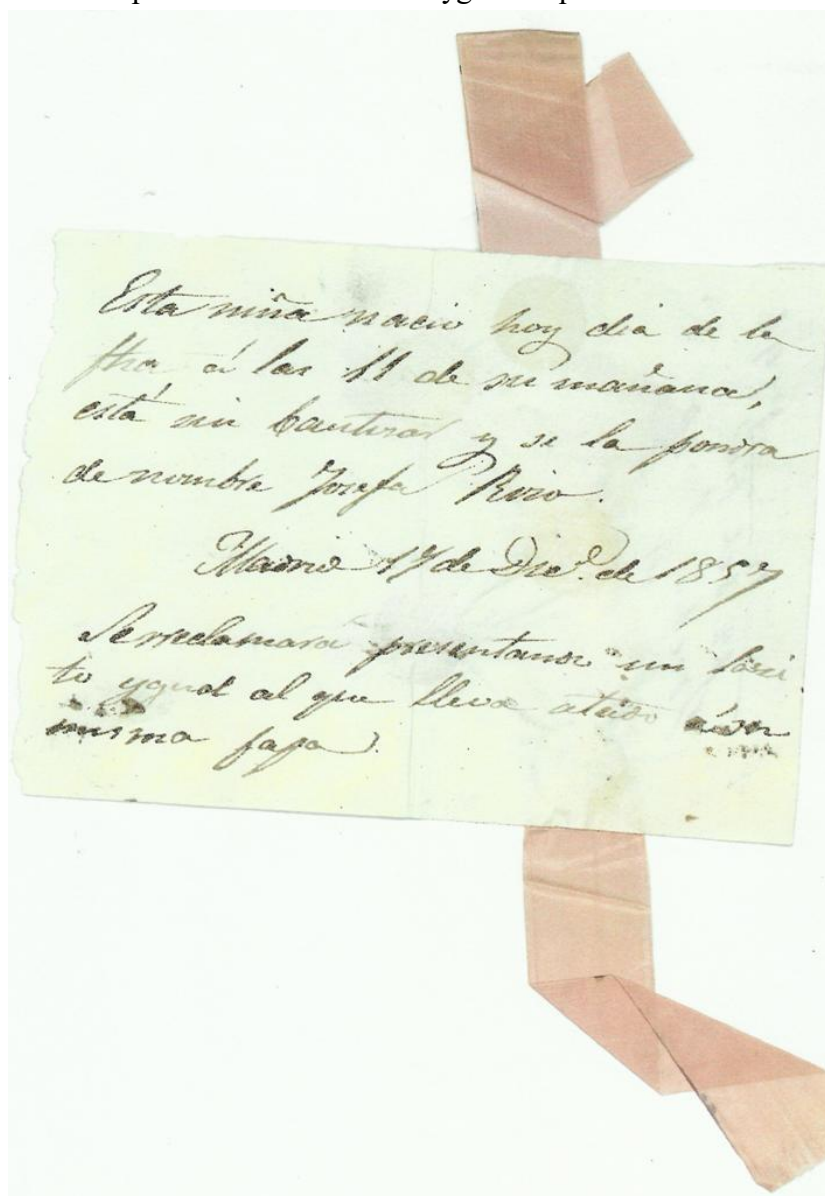 Esta niña nacio hoy dia de la
fha á las 11 de su mañana,
está sin bautizar y se la pondra
de nombre Josefa
Madrid 17 de Dice. de 1857
Se rreclamara presentando un lasi
to ygual al que lleva atado
misma faja.